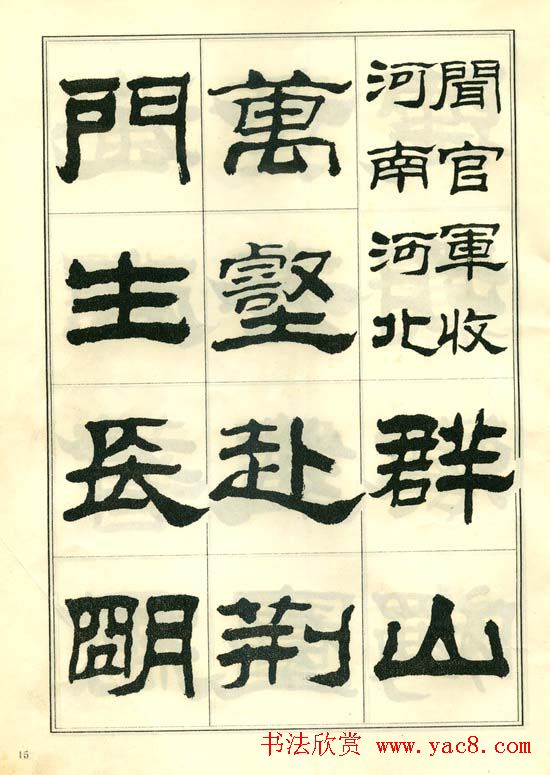 聞官軍收
河南河北
群山
萬壑赴荆
門生長朙
15
书法欣赏 www.yac8.com